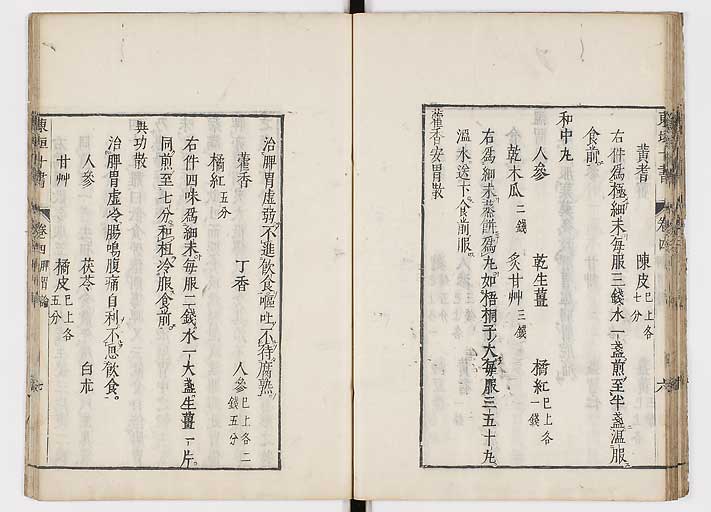 東垣十書 卷四 六
黃耆 陳皮已上各七分
右件爲極細末每服三錢水一盞煎至半盞溫服
食前
和中丸
人參 乾生薑 橘紅已上各一錢
乾木瓜二錢 炙甘艸三錢
右爲細末蒸餅爲丸如梧桐子大每服三五十丸
溫水送下食前服
藿香安胃散
治脾胃虛弱不進飲食嘔吐不待腐熟
藿香 丁香 人參已上各二錢五分
橘紅五分
右件四味爲細末每服二錢水一大盞生薑一片
同煎至七分和粗冷服食前
異功散
治脾胃虛冷腸鳴腹痛自利不思飲食
人參 茯苓 白朮
甘艸 橘皮已上各五分
東垣十書 卷四脾胃論 七